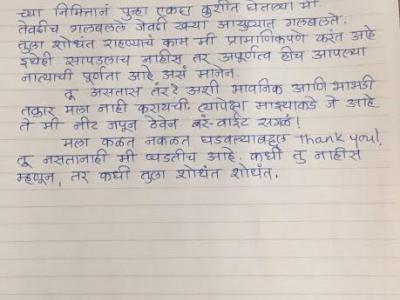 च्या निमित्तानं पुन्हा एकदा कुशीत घेतल्या मी
तेवढीच गलबलले जेवढी खऱ्या आयुष्यात गलबलते.
तुला शोधंत राहण्याचं काम मी प्रामाणिकपणे करत आहे
इथेही सापडलाच नाहीस तर अपूर्णत्व हीच आपल्या
नात्याची पूर्णता आहे असं मानेन.
तू असतास तर रे अशी भावनिक आणि भाबडी
तक्रार मला नाही करायची. त्यापेक्षा माझ्याकडे जे आहे
ते मी नीट जपून ठेवेन बरं-वाईट सगळं!
मला कळत नकळत घडवल्याबद्दल Thank you!
तू नसतानाही मी घडतीच आहे. कधी तु नाहीस
म्हणून, तर कधी तुला शोधंत शोधंत.